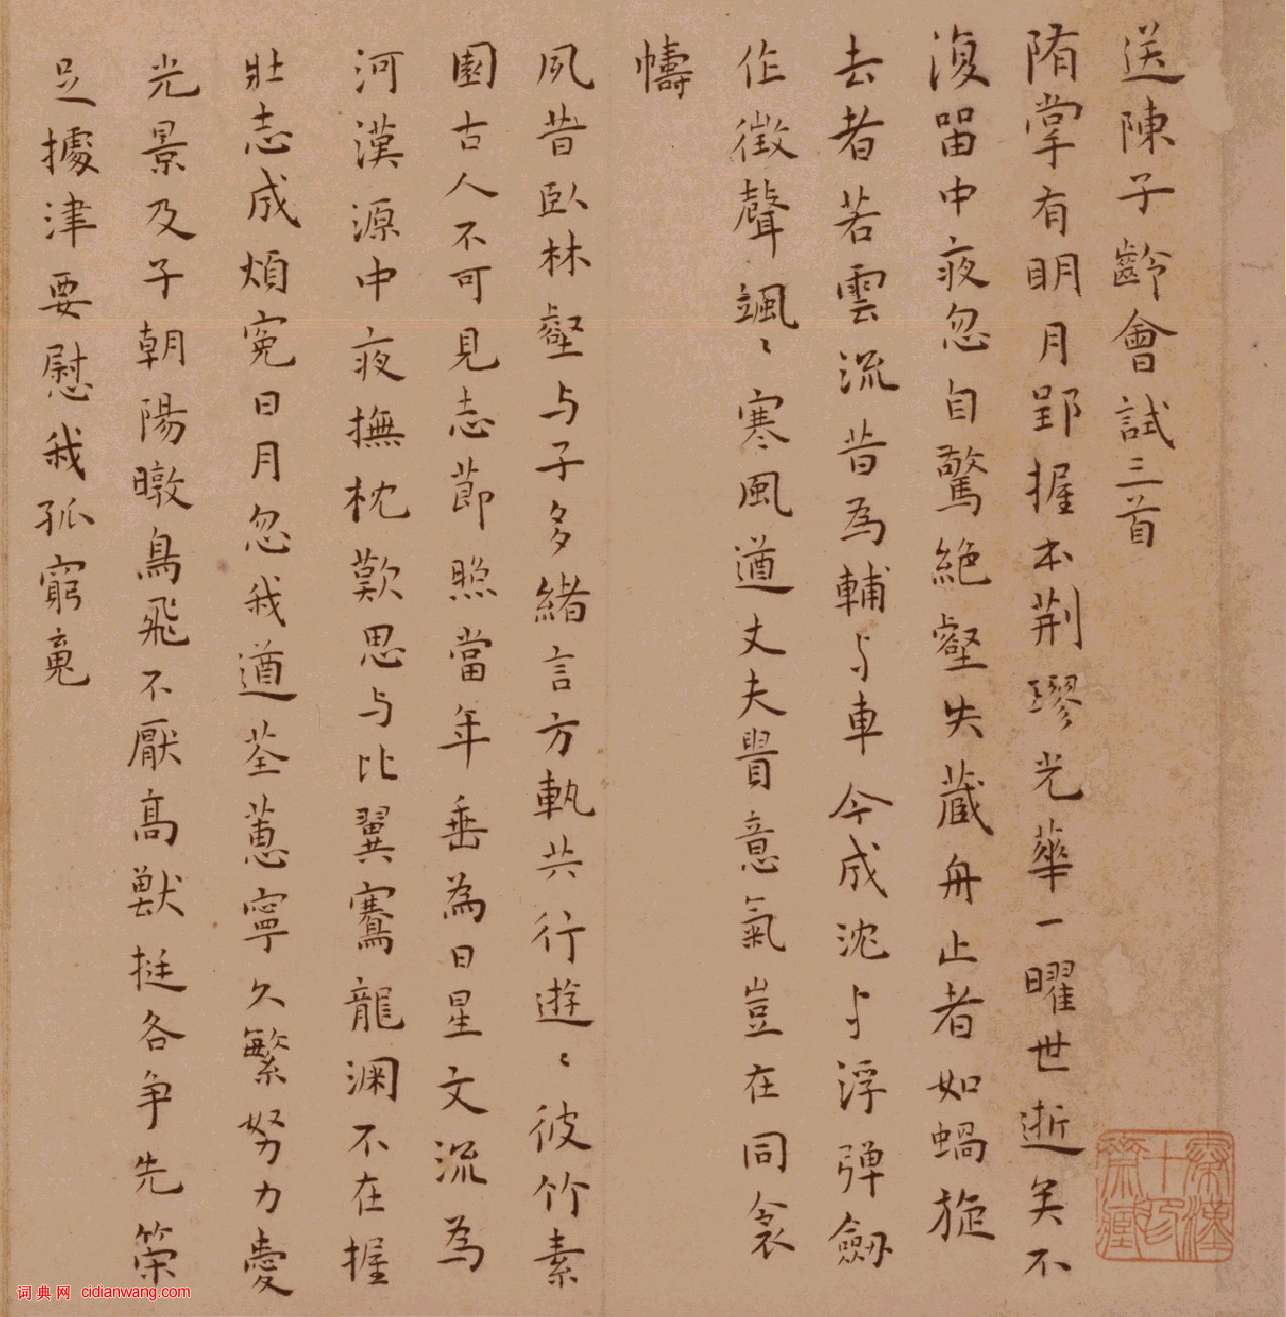 送陳子齡會試三首
隋掌有明月郢握本荆璆光華一曜世逝矣不
復畱中夜忽自驚絕壑失藏舟止者如蝸旋
去者若雲流昔為輔与車今成沈与浮彈劒
作徵聲颯〻寒風遒丈夫貴意氣豈在同衾
幬
夙昔臥林壑与子多緒言方軌共行遊〻彼竹素
園古人不可見志莭照當年垂為日星文流為
河漢源中夜撫枕歎思与比翼騫龍淵不在握
壯志成煩冤日月忽我遒荃蕙寧久繁努力愛
光景及子朝陽暾鳥飛不厭高獸挺各争先策
足據津要慰我孤窮䰟
词典网 cidianwang.com